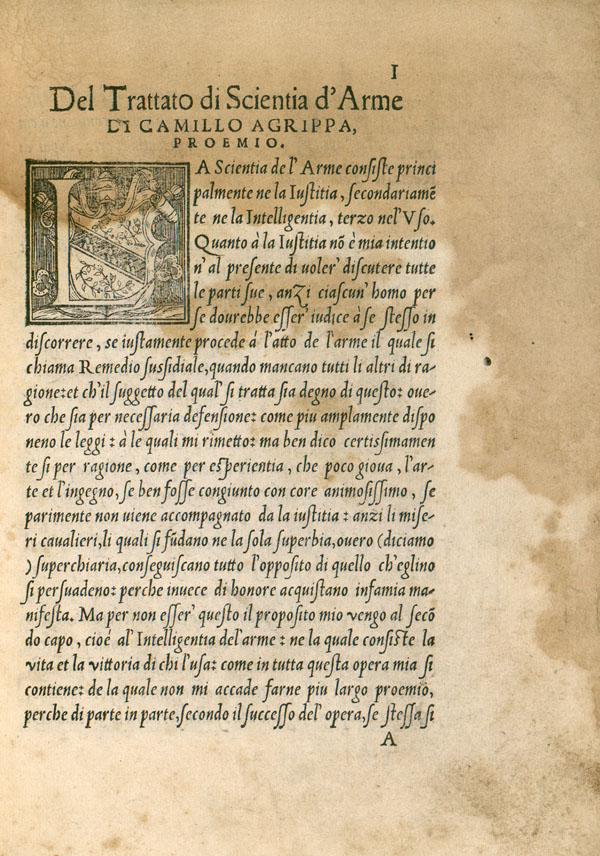 I
Del Trattato di Scientia d'Arme
DI CAMILLO AGRIPPA,
PROEMIO.
LA Scientia de l' Arme consiste princi
palmente ne la Iustitia, secondariamẽ
te ne la Intelligentia, terzo nel' Vso.
Quanto à la Iustitia nõ è mia intentio
n' al presente di uoler' discutere tutte
le parti sue, anzi ciascun' homo per
se dourebbe esser' iudice à se stesso in
discorrere, se iustamente procede á l'atto de l'arme il quale si
chiama Remedio sussidiale, quando mancano tutti li altri di ra-
gione: et ch'il suggetto del qual' si tratta sia degno di questo: oue-
ro che sia per necessaria defensione: come piu amplamente dispo
neno le leggi: à le quali mi rimetto: ma ben dico certissimamen
te si per ragione, come per esperientia, che poco gioua, l'ar-
te et l'ingegno, se ben fosse congiunto con core animosissimo, se
parimente non uiene accompagnato da la iustitia: anzi li mise-
ri cauallieri, li quali si fũdano ne la sola superbia, ouero (diciamo
) superchiaria, conseguiscano tutto l'opposito di quello ch'eglino
si persuadeno: perche inuece di honore acquistano infamia ma-
nifesta. Ma per non esser' questo il proposito mio vengo al secõ
do capo, cioé al' Intelligentia del'arme: ne la quale consiste la
vita et la vittoria di chi l'usa: come in tutta questa opera mia si
contiene: de la quale non mi accade farne piu largo proemio,
perche di parte in parte, secondo il successo del' opera, se stessa si
A